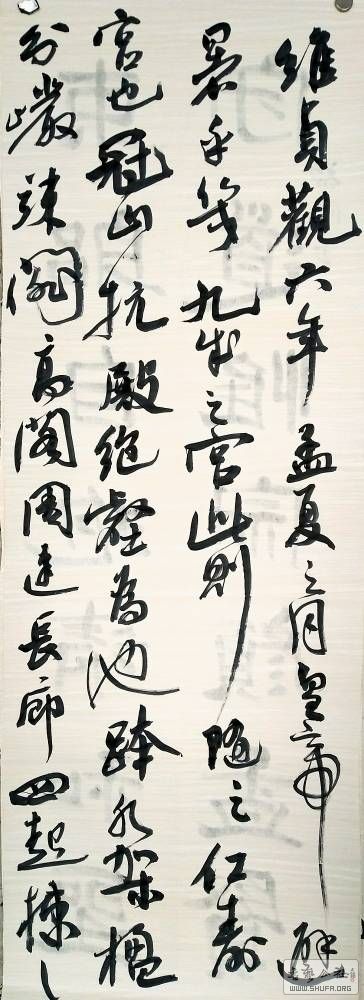 維貞觀六年孟夏之月皇帝避
暑乎九成之宮此則隨之仁壽
宮也冠山抗殿絕壑為池跨水架楹
分巖竦闕高閣周建長廊四起棟
WWW.SHUFA.ORG